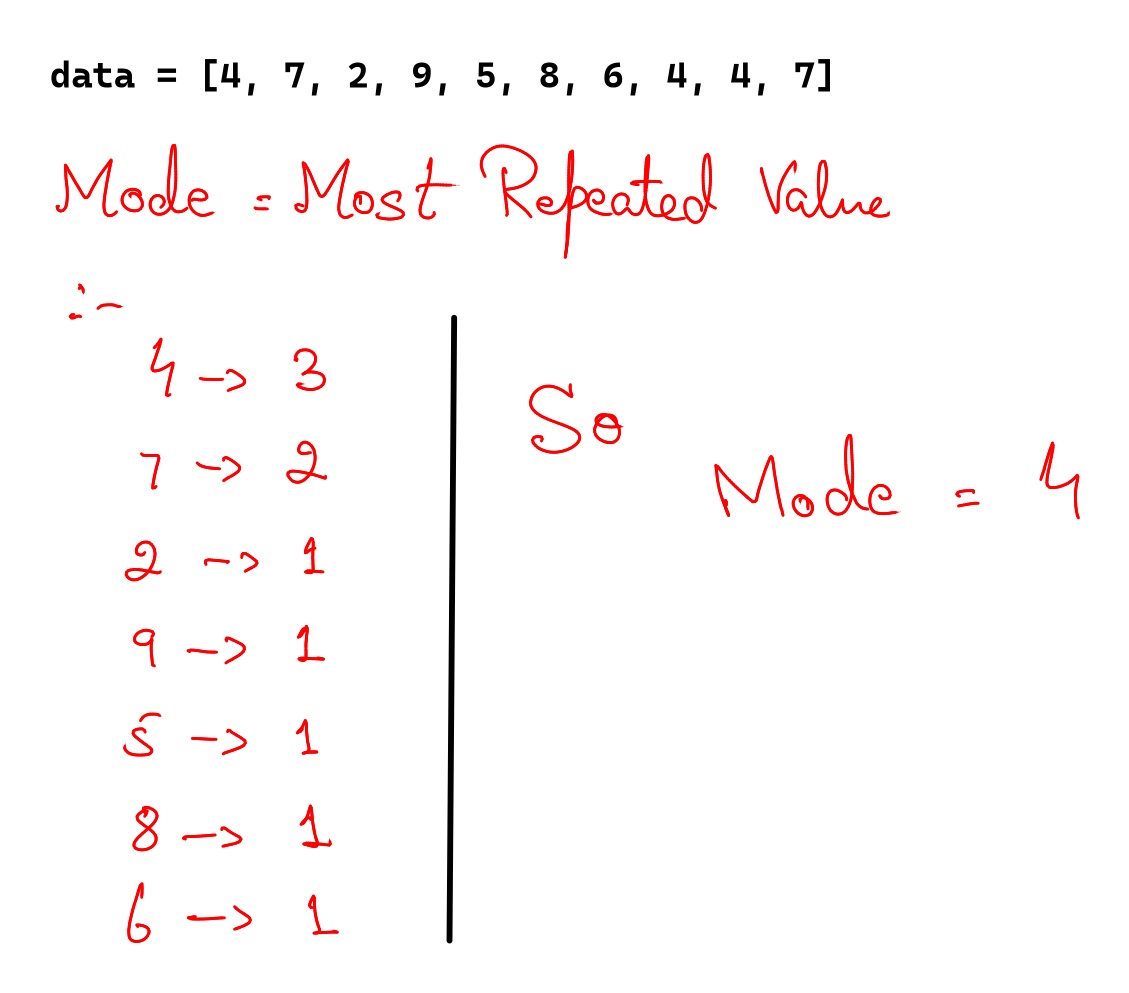 data = [4, 7, 2, 9, 5, 8, 6, 4, 4, 7]
Mode = Most Repeated Value
:-
4 -> 3
7 -> 2
2 -> 1
9 -> 1
5 -> 1
8 -> 1
6 -> 1
So
Mode = 4